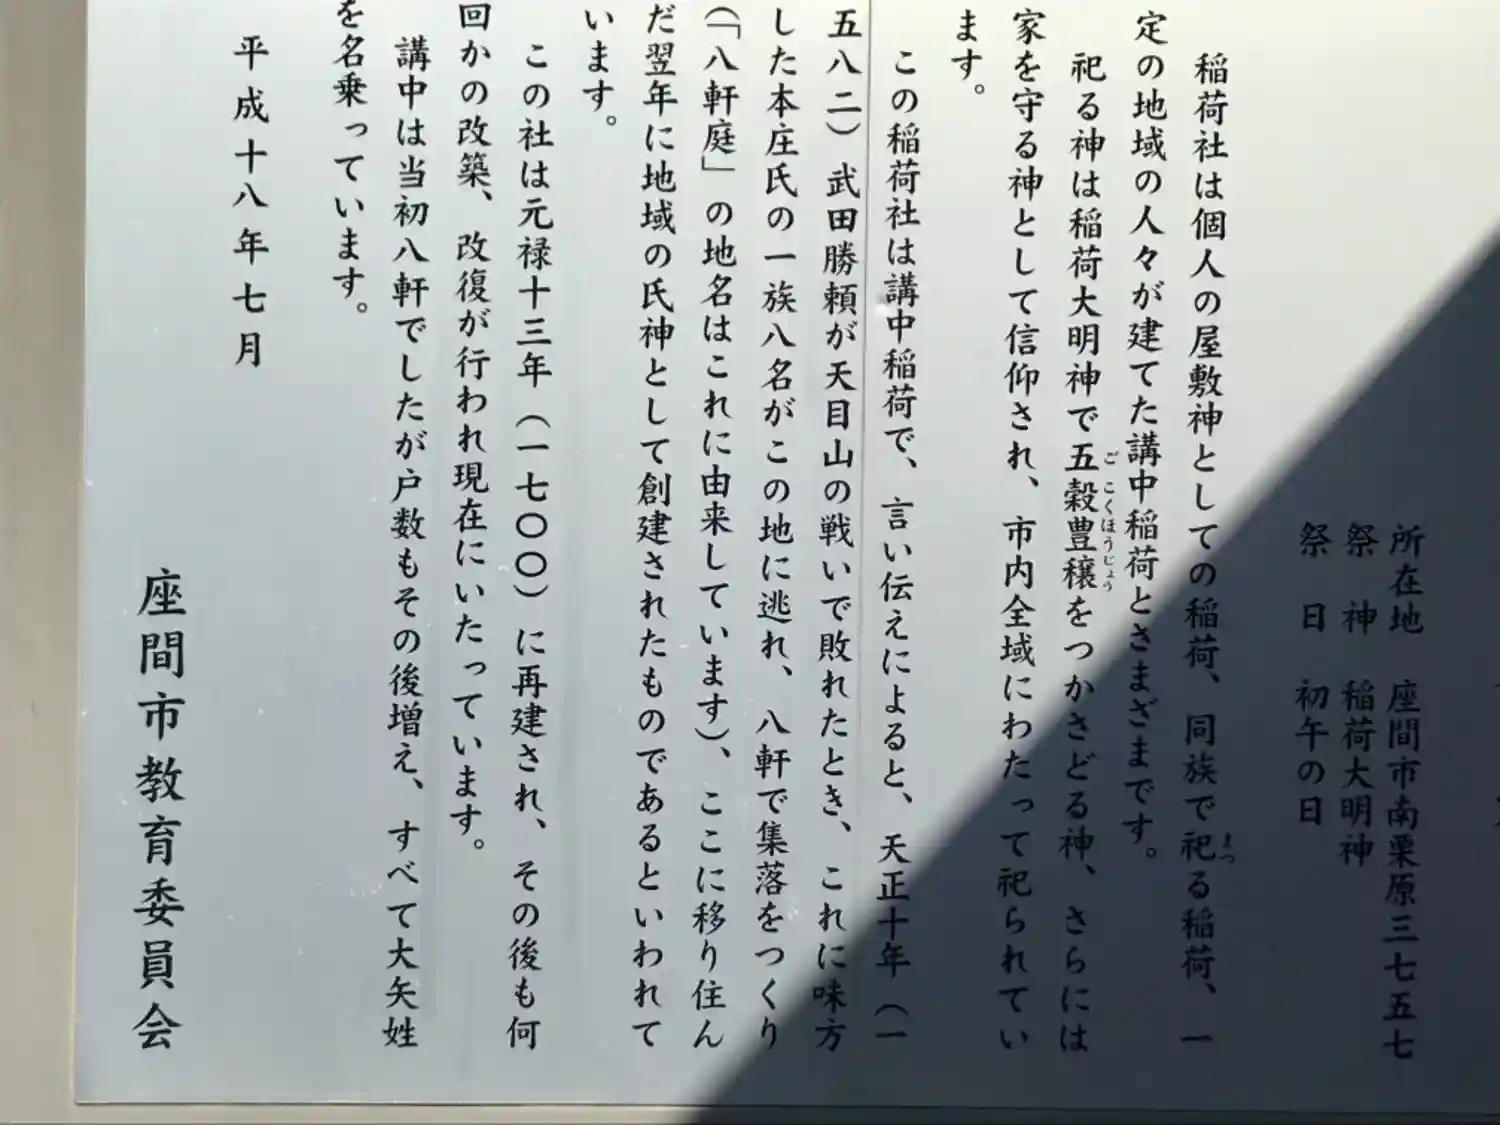 所在地　座間市南栗原三七五七
祭　神　稲荷大明神
祭　日　初午の日
稲荷社は個人の屋敷神としての稲荷、同族で祀る稲荷、一
定の地域の人々が建てた講中稲荷とさまざまです。
祀る神は稲荷大明神で五穀豊穣をつかさどる神、さらには
家を守る神として信仰され、市内全域にわたって祀られてい
ます。
この稲荷社は講中稲荷で、言い伝えによると、天正十年（一
五八二）武田勝頼が天目山の戦いで敗れたとき、これに味方
した本庄氏の一族八名がこの地に逃れ、八軒で集落をつくり
（「八軒庭」の地名はこれに由来しています）、ここに移り住ん
だ翌年に地域の氏神として創建されたものであるといわれて
います。
この社は元禄十三年（一七〇〇）に再建され、その後も何
回かの改築、改復が行われ現在にいたっています。
講中は当初八軒でしたが戸数もその後増え、すべて大矢姓
を名乗っています。
平成十八年七月
座間市教育委員会